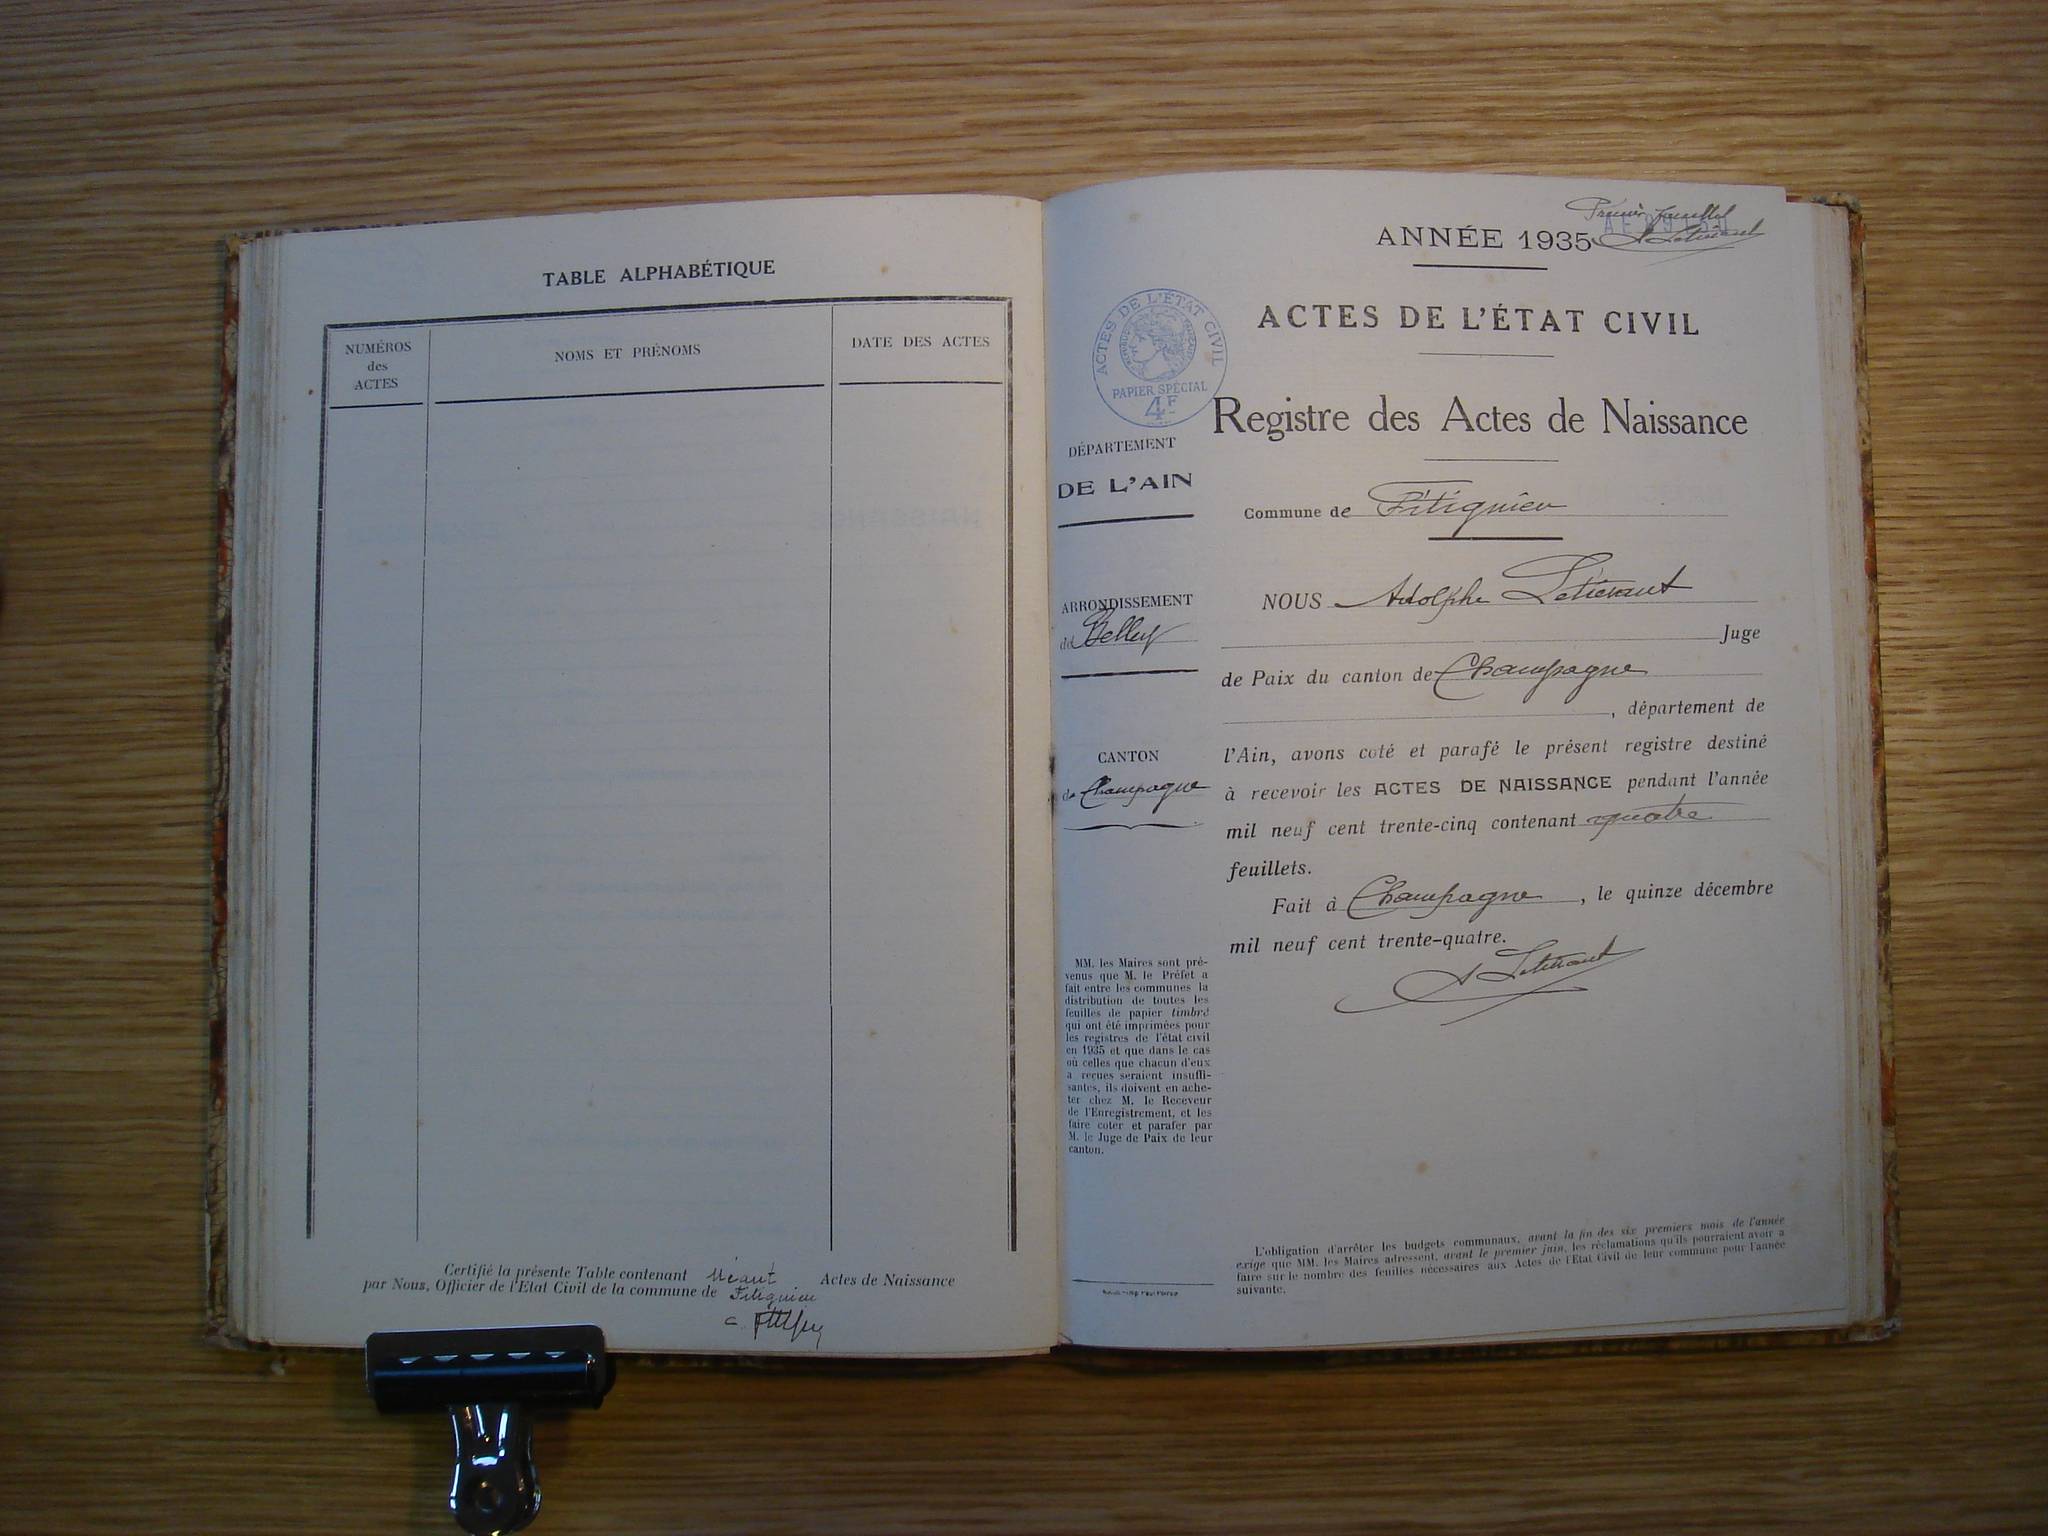 TABLE ALPHABÉTIQUE
NUMÉROS
des
ACTES
NOMS ET PRÉNOMS
DATE DES ACTES
Certifié la présente Table contenant Néant Actes de Naissance
par Nous, Officier de l'Etat Civil de la commune de Fitignieu
Premier feuillet
ANNÉE 1935
ACTES DE L'ÉTAT CIVIL
ACTES DE L'ÉTAT CIVIL
RÉPUBLIQUE FRANÇAISE
PAPIER SPÉCIAL
4F
Registre des Actes de Naissance
DÉPARTEMENT
DE L'AIN
Commune de Fitignieu
ARRONDISSEMENT
de Belley
CANTON
de Champagne
NOUS Adolphe
Juge
de Paix du canton de Champagne
, département de
l'Ain, avons coté et parafé le présent registre destiné
à recevoir les ACTES DE NAISSANCE pendant l'année
mil neuf cent trente-cinq contenant quatre
feuillets.
Fait à Champagne, le quinze décembre
mil neuf cent trente-quatre.
MM. les Maires sont pré-
venus que M. le Préfet a
fait entre les communes la
distribution de toutes les
feuilles de papier timbré
qui ont été imprimées pour
les registres de l'état civil
en 1935 et que dans le cas
où celles que chacun d'eux
a reçues seraient insuffi-
santes, ils doivent en ache-
ter chez M. le Receveur
de l'Enregistrement, et les
faire coter et parafer par
M. le Juge de Paix de leur
canton.
L'obligation d'arrêter les budgets communaux, avant la fin des six premiers mois de l'année
exige que MM. les Maires adressent, avant le premier juin, les réclamations qu'ils pourraient avoir à
faire sur le nombre des feuilles nécessaires aux Actes de l'Etat Civil de leur commune pour l'année
suivante.